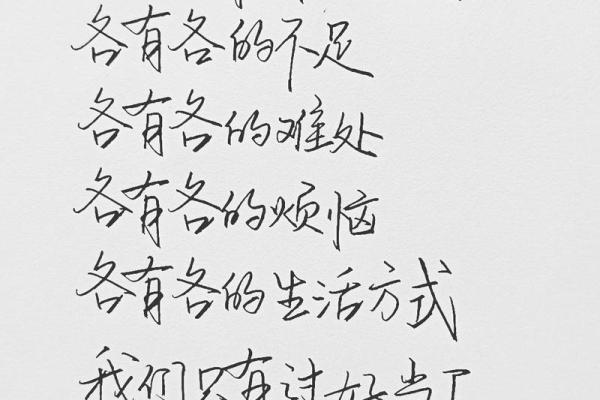 各有各的不足
各有各的难处
各有各的烦恼
各有各的生活方式
我们只有过好当下